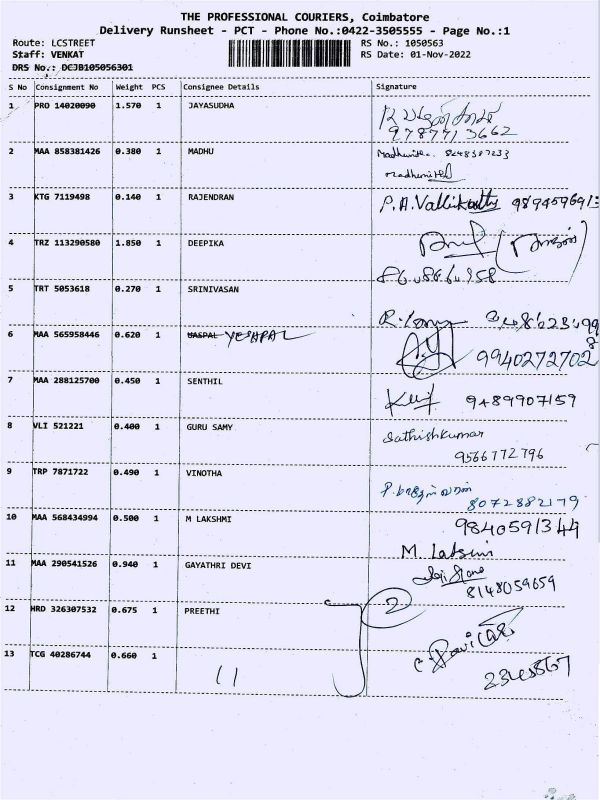 THE PROFESSIONAL COURIERS, Coimbatore
Delivery Runsheet - PCT - Phone No.:0422-3505555 - Page No.:1
Route: LCSTREET RS No.: 1050563
Staff: VENKAT RS Date: 01-Nov-2022
DRS No.: DCJB105056301
S No Consignment No Weight PCS Consignee Details Signature
1 PRO 14020090 1.570 1 JAYASUDHA
9787713662
2 MAA 858381426 0.380 1 MADHU
3 KTG 7119498 0.140 1 RAJENDRAN P.A.Vallikatty
4 TRZ 113290580 1.850 1 DEEPIKA
5 TRT 5053618 0.270 1 SRINIVASAN
6 MAA 565958446 0.620 1 UASPAL YESHPAL
9940272702
7 MAA 288125700 0.450 1 SENTHIL
9489907159
8 VLI 521221 0.400 1 GURU SAMY Sathishkumar
9566772796
9 TRP 7871722 0.490 1 VINOTHA
8072882179
10 MAA 568434994 0.500 1 M LAKSHMI 9840591344
M. Laksmi
11 MAA 290541526 0.940 1 GAYATHRI DEVI
8148059659
12 HRD 326307532 0.675 1 PREETHI 2
13 TCG 40286744 0.660 1
11